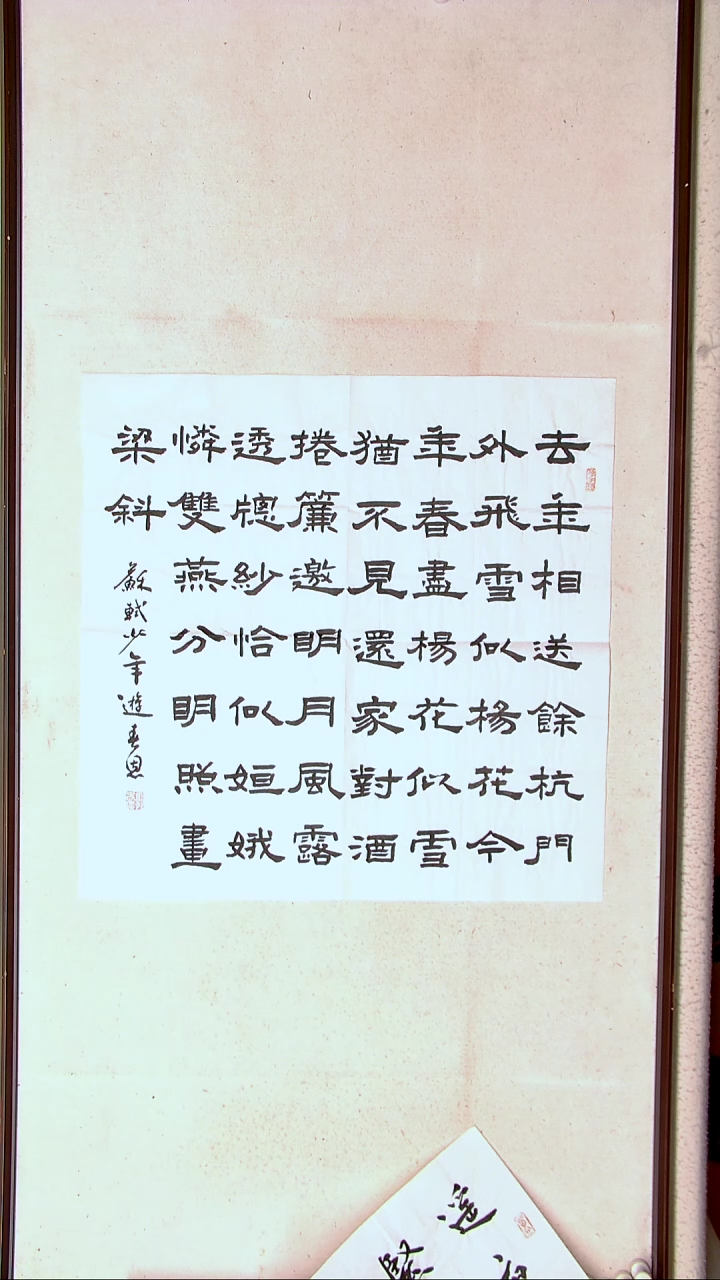 去年相送餘杭門
外飛雪似楊花今
年春盡楊花似雪
猶不見還家對酒
捲簾邀明月風露
透窻紗恰似姮娥
憐雙燕分明照畫
梁斜
蘇軾少年遊春恩